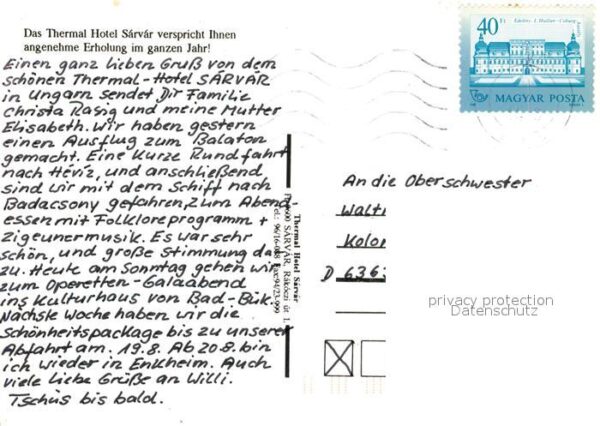 Das Thermal Hotel Sárvár verspricht Ihnen
angenehme Erholung im ganzen Jahr!
Einen ganz lieben Gruß von dem
schönen Thermal-Hotel SÁRVÁR
in Ungarn sendet Dir Familie
Christa Rasig und meine Mutter
Elisabeth. Wir haben gestern
einen Ausflug zum Balaton
gemacht. Eine Kurze Rundfahrt
nach Héviz, und anschließend
sind wir mit dem Schiff nach
Badacsony gefahren, zum Abend-
essen mit Folkloreprogramm +
Zigeunermusik. Es war sehr
schön, und große Stimmung da-
zu. Heute am Sonntag gehen wir
zum Operetten-Galaabend
ins Kulturhaus von Bad-Bük.
Nächste Woche haben wir die
Schönheitspackage bis zu unserer
Abfahrt am. 19.8. Ab 20.8. bin
ich wieder in Enkheim. Auch
viele liebe Grüße an Willi.
Tschüs bis bald.
Thermal Hotel Sárvár
SÁRVÁR, Rákóczi út 1.
40 Ft
MAGYAR POSTA
An die Oberschwester
Walt
Kolon
D 636
privacy protection
Datenschutz